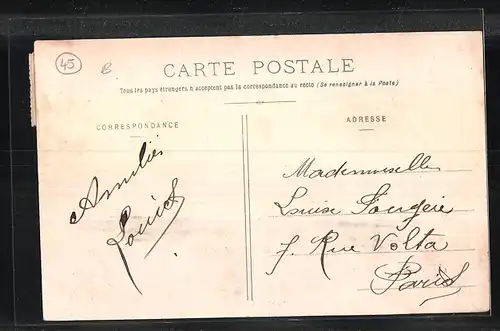 45
CARTE POSTALE
Tous les pays étrangers n'acceptent pas la correspondance au recto (Se renseigner à la Poste)
CORRESPONDANCE
ADRESSE
Amitiés
Mademoiselle
Louise
7. Rue Volta
Paris